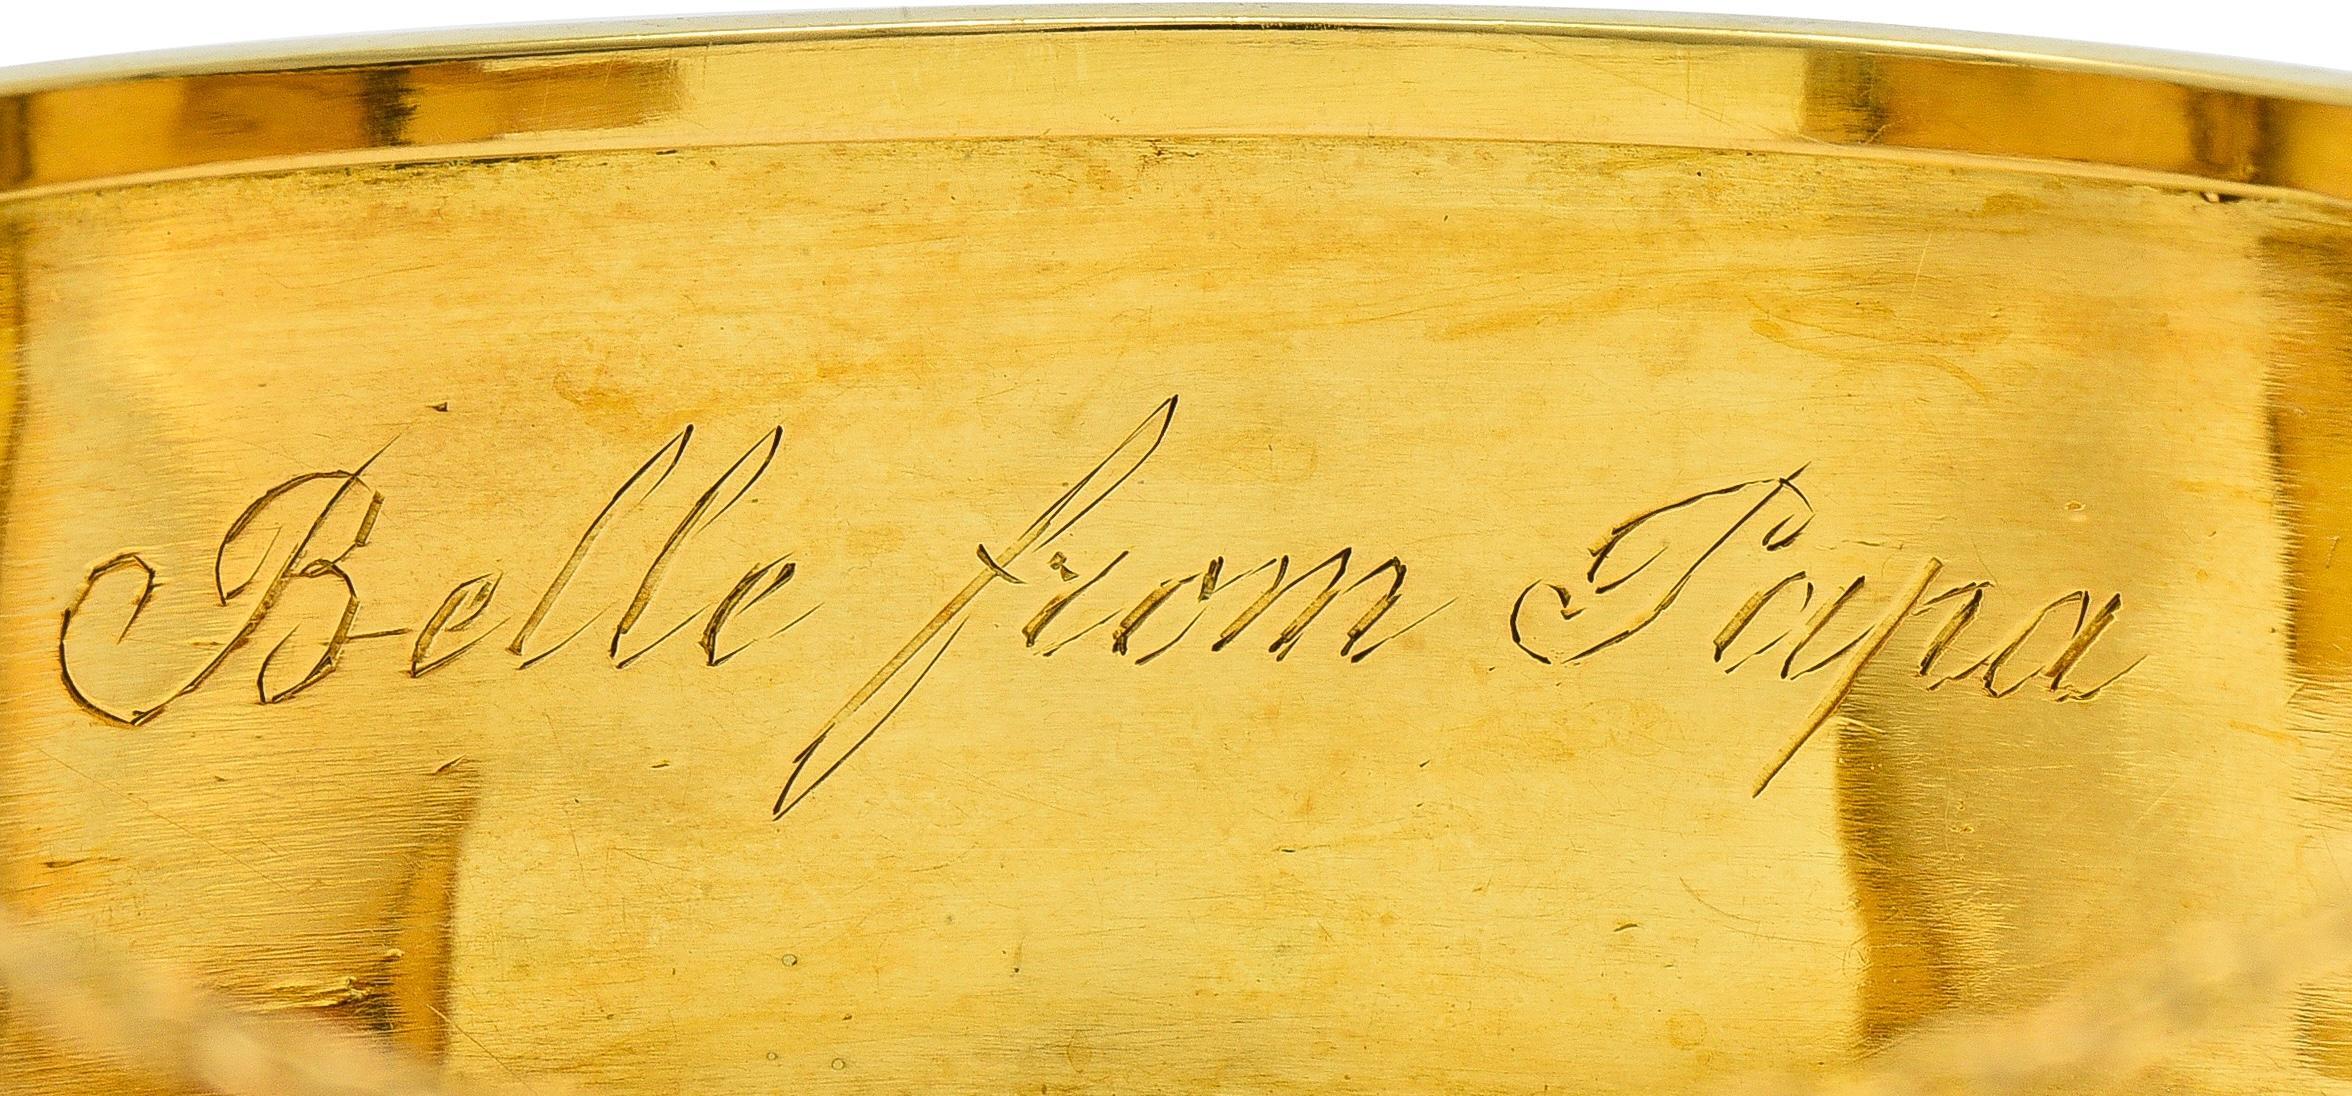 Belle from Papa